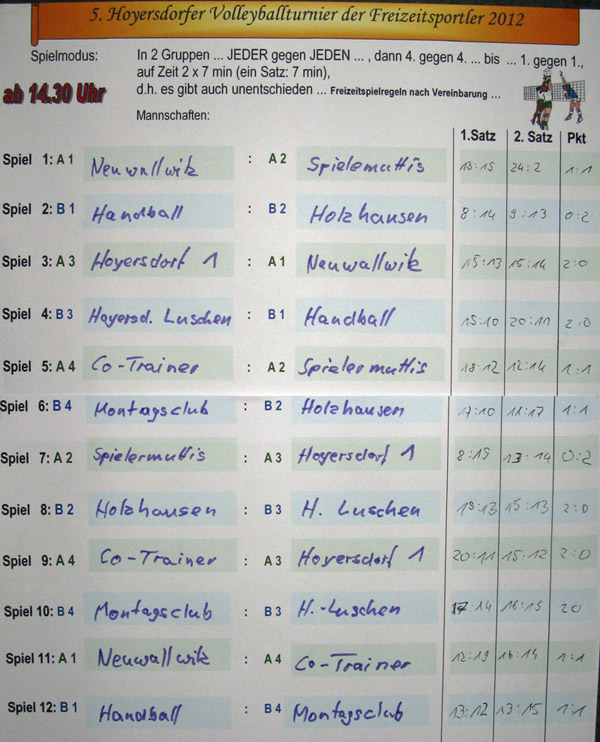 5. Hoyersdorfer Volleyballturnier der Freizeitsportler 2012
Spielmodus: In 2 Gruppen ... JEDER gegen JEDEN ... , dann 4. gegen 4. ... bis ... 1. gegen 1.,
auf Zeit 2 x 7 min (ein Satz: 7 min),
ab 14.30 Uhr d.h. es gibt auch unentschieden ... Freizeitspielregeln nach Vereinbarung ...
Mannschaften:
1.Satz 2. Satz Pkt
Spiel 1: A 1 Neuwallwitz : A 2 Spielemuttis 13:15 24:2 1:1
Spiel 2: B 1 Handball : B 2 Holzhausen 8:14 9:13 0:2
Spiel 3: A 3 Hoyersdorf 1 : A 1 Neuwallwitz 15:13 15:14 2:0
Spiel 4: B 3 Hoyersd. Luschen : B 1 Handball 15:10 2:0
Spiel 5: A 4 Co-Trainer : A 2 Spielermuttis 18:12 12:14 1:1
Spiel 6: B 4 Montagsclub : B 2 Holzhausen 17:10 1:1
Spiel 7: A 2 Spielermuttis : A 3 Hoyersdorf 1 8:19 13:14 0:2
Spiel 8: B 2 Holzhausen : B 3 H. Luschen 15:13 2:0
Spiel 9: A 4 Co-Trainer : A 3 Hoyersdorf 1 20:11 15:12 2:0
Spiel 10: B 4 Montagsclub : B 3 H.-Luschen 17:14 16:15 2:0
Spiel 11: A 1 Neuwallwitz : A 4 Co-Trainer 12:19 16:14 1:1
Spiel 12: B 1 Handball : B 4 Montagsclub 13:12 13:15 1:1